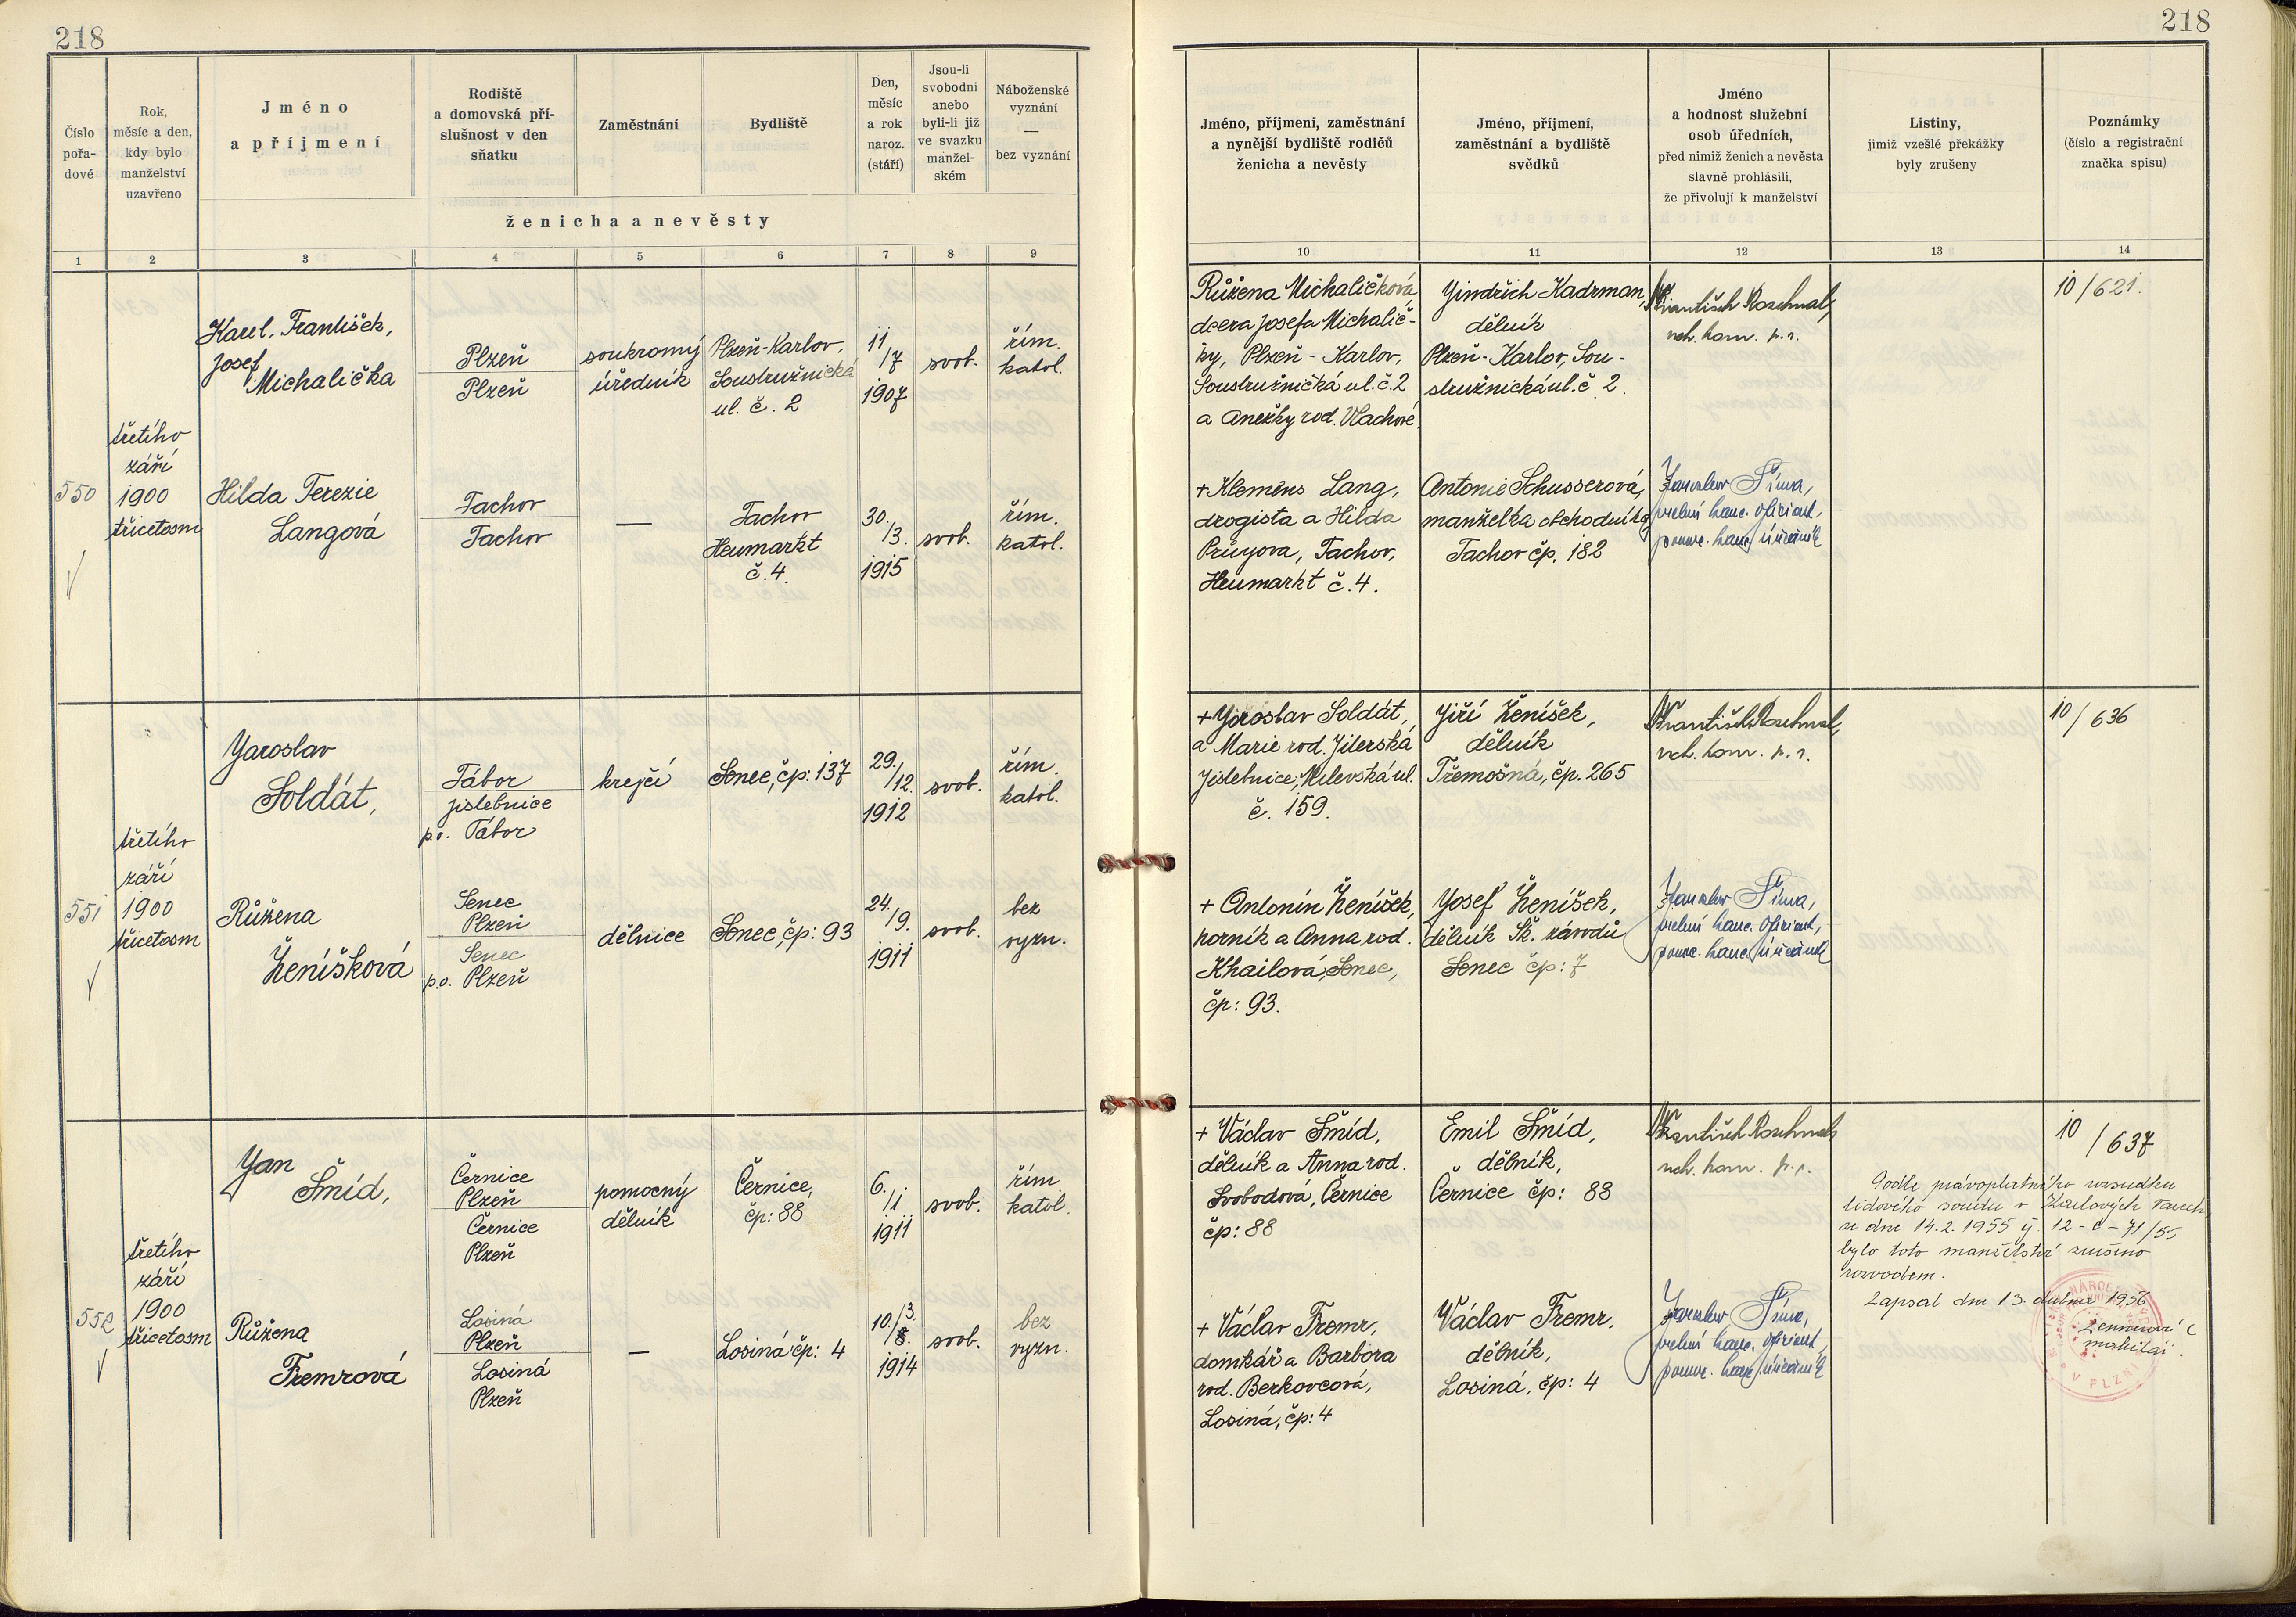 218
218
Číslo
pořa-
dové
Rok,
měsíc a den,
kdy bylo
manželství
uzavřeno
Jméno
a příjmení
Rodiště
a domovská pří-
slušnost v den
sňatku
Zaměstnání
Bydliště
Den,
měsíc
a rok
naroz.
(stáří)
Jsou-li
svobodni
anebo
byli-li již
ve svazku
manžel-
ském
Náboženské
vyznání
—
bez vyznání
ženicha a nevěsty
Jméno, příjmení, zaměstnání
a nynější bydliště rodičů
ženicha a nevěsty
Jméno, příjmení,
zaměstnání a bydliště
svědků
Jméno
a hodnost služební
osob úředních,
před nimiž ženich a nevěsta
slavně prohlásili,
že přivolují k manželství
Listiny,
jimiž vzešlé překážky
byly zrušeny
Poznámky
(číslo a registrační
značka spisu)
1 2 3 4 5 6 7 8 9
10 11 12 13 14
550
třetího
září
1900
třicetosm
Karel, František,
Josef
Michalička
Plzeň
Plzeň
soukromý
úředník
Plzeň-Karlov,
Soustružnická
ul. č. 2
11
/7
1907
svob.
řím.
katol.
Růžena Michaličková,
dcera Josefa Michalič-
ky, Plzeň - Karlov,
Soustružničká ul. č. 2
a Anežky rod. Vlachové.
Jindřich Kadrman,
dělník
Plzeň-Karlov, Sou-
stružnická ul. č. 2.
František
10/621.
Hilda Terezie
Langová
Tachov
Tachov
—
Tachov
Heumarkt
č. 4.
30.
/3.
1915
svob.
řím.
katol.
+ Klemens Lang,
drogista a Hilda
Tachov,
Heumarkt č. 4.
Antonie Schusserová,
manželka obchodníka,
Tachov čp. 182
Jaroslav Šíma,
551
třetího
září
1900
třicetosm
Jaroslav
Soldát,
Tábor
Jistebnice
p.o. Tábor
krejčí
Senec, čp: 137
29.
/12.
1912
svob.
řím.
katol.
+ Jaroslav Soldát,
a Marie rod. Jilerská
Jistebnice, Milevská ul.
č. 159.
Jiří Ženíšek,
dělník
Třemošná, čp. 265
František
10/636
Růžena
Ženíšková
Senec
Plzeň
Senec
p.o. Plzeň
dělnice
Senec, čp: 93
24.
/9.
1911
svob.
bez
vyzn.
+ Antonín Ženíšek,
horník a Anna rod.
Khailová, Senec,
čp: 93.
Josef Ženíšek,
dělník Šk. závodů
Senec čp: 7
Jaroslav Šíma,
552
třetího
září
1900
třicetosm
Jan
Šmíd,
Černice
Plzeň
Černice
Plzeň
pomocný
dělník
Černice,
čp: 88
6.
/1.
1911
svob.
řím.
katol.
+ Václav Šmíd,
dělník a Anna rod.
Svobodová, Černice
čp: 88
Emil Šmíd,
dělník,
Černice čp: 88
František
10/637
Podle právoplatného rozsudku
lidového soudu v Karlových Varech
ze dne 14.2.1955 čj. 12-C-71/55
bylo toto manželství zrušeno
rozvodem.
Zapsal dne 13. dubna 1956
Růžena
Fremrová
Losiná
Plzeň
Losiná
Plzeň
—
Losiná čp: 4
10./3.
1914
svob.
bez
vyzn.
+ Václav Fremr,
domkář a Barbora
rod. Berkovcová,
Losiná, čp: 4
Václav Fremr,
dělník,
Losiná, čp: 4
Jaroslav Šíma,
V PLZNI